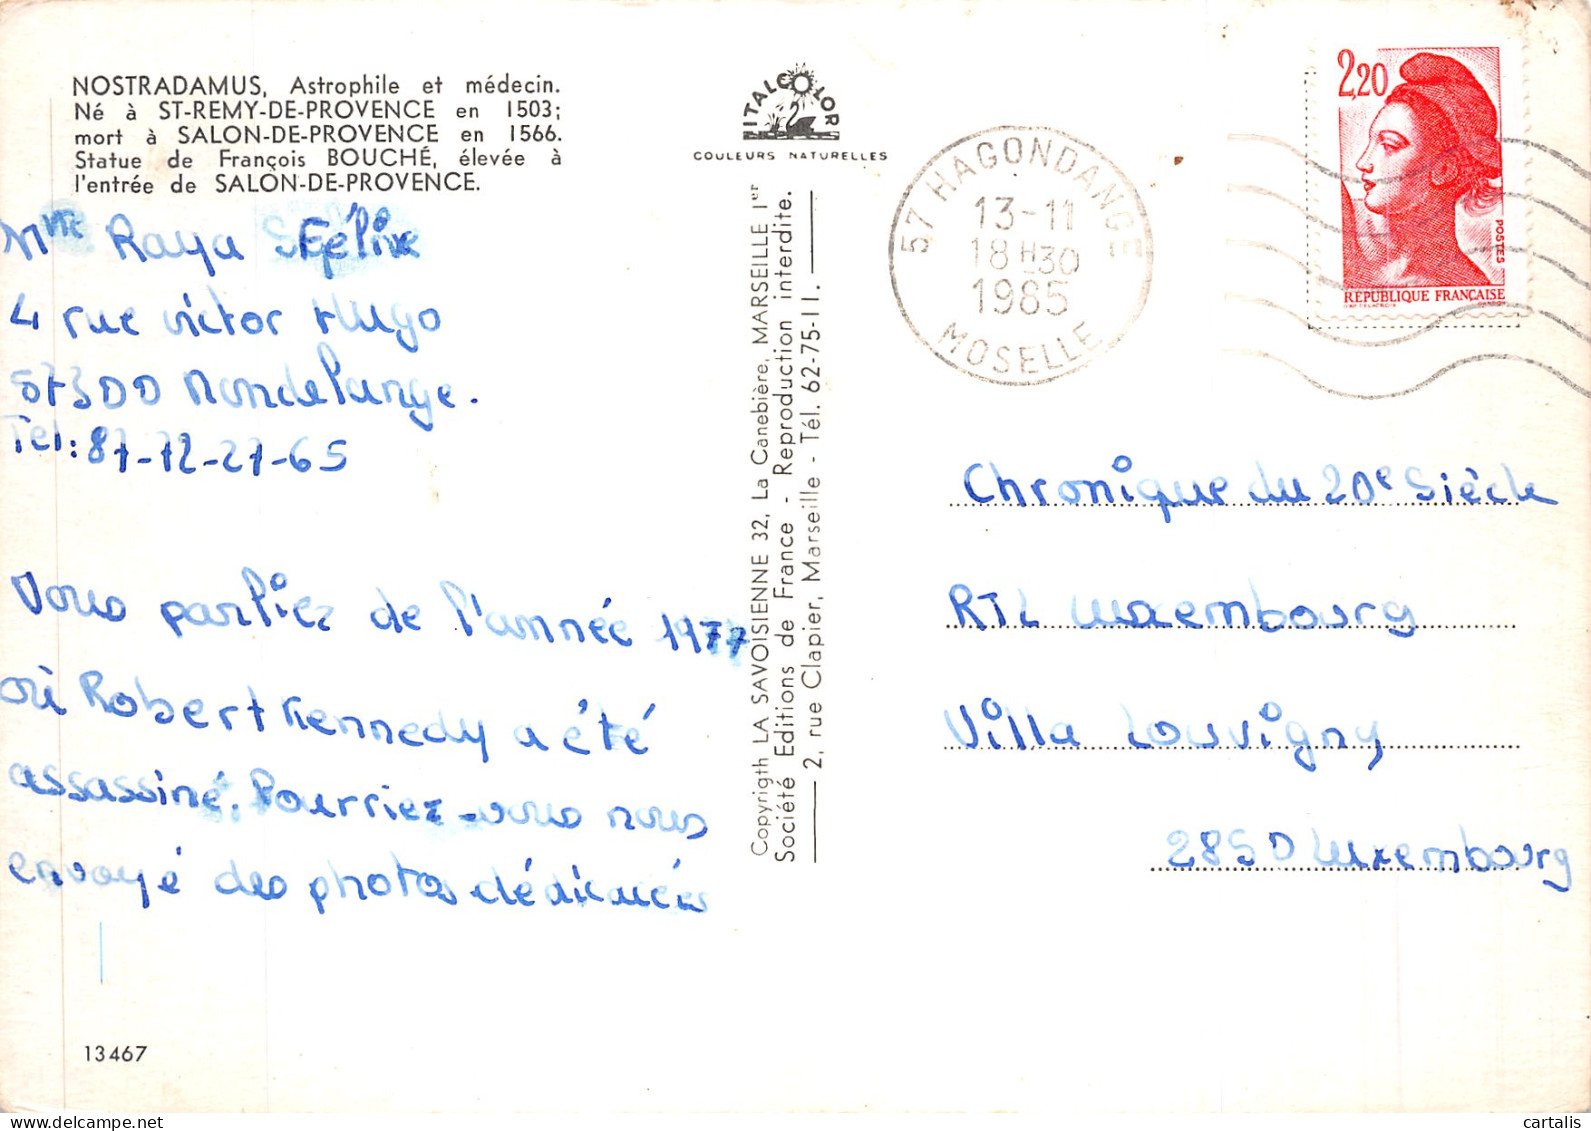 NOSTRADAMUS, Astrophile et médecin.
Né à ST-REMY-DE-PROVENCE en 1503;
mort à SALON-DE-PROVENCE en 1566.
Statue de François BOUCHÉ, élevée à
l'entrée de SALON-DE-PROVENCE.
Mme Raya Félix
4 rue victor Hugo
57300 Mondelange.
Tel: 87-72-27-65
Vous parliez de l'année 1977
où Robert Kennedy a été
assassiné. Pourriez-vous nous
envoyé des photos dédicacées
13467
ITALCOLOR
COULEURS NATURELLES
Copyrigth LA SAVOISIENNE 32, La Canebière, MARSEILLE 1er
Société Editions de France - Reproduction interdite.
2, rue Clapier, Marseille - Tél. 62-75-11.
57 HAGONDANGE
13-11
18H30
1985
MOSELLE
2,20
POSTES
REPUBLIQUE FRANÇAISE
Chronique du 20e Siècle
RTL Luxembourg
Villa Louvigny
2850 Luxembourg
cartalis